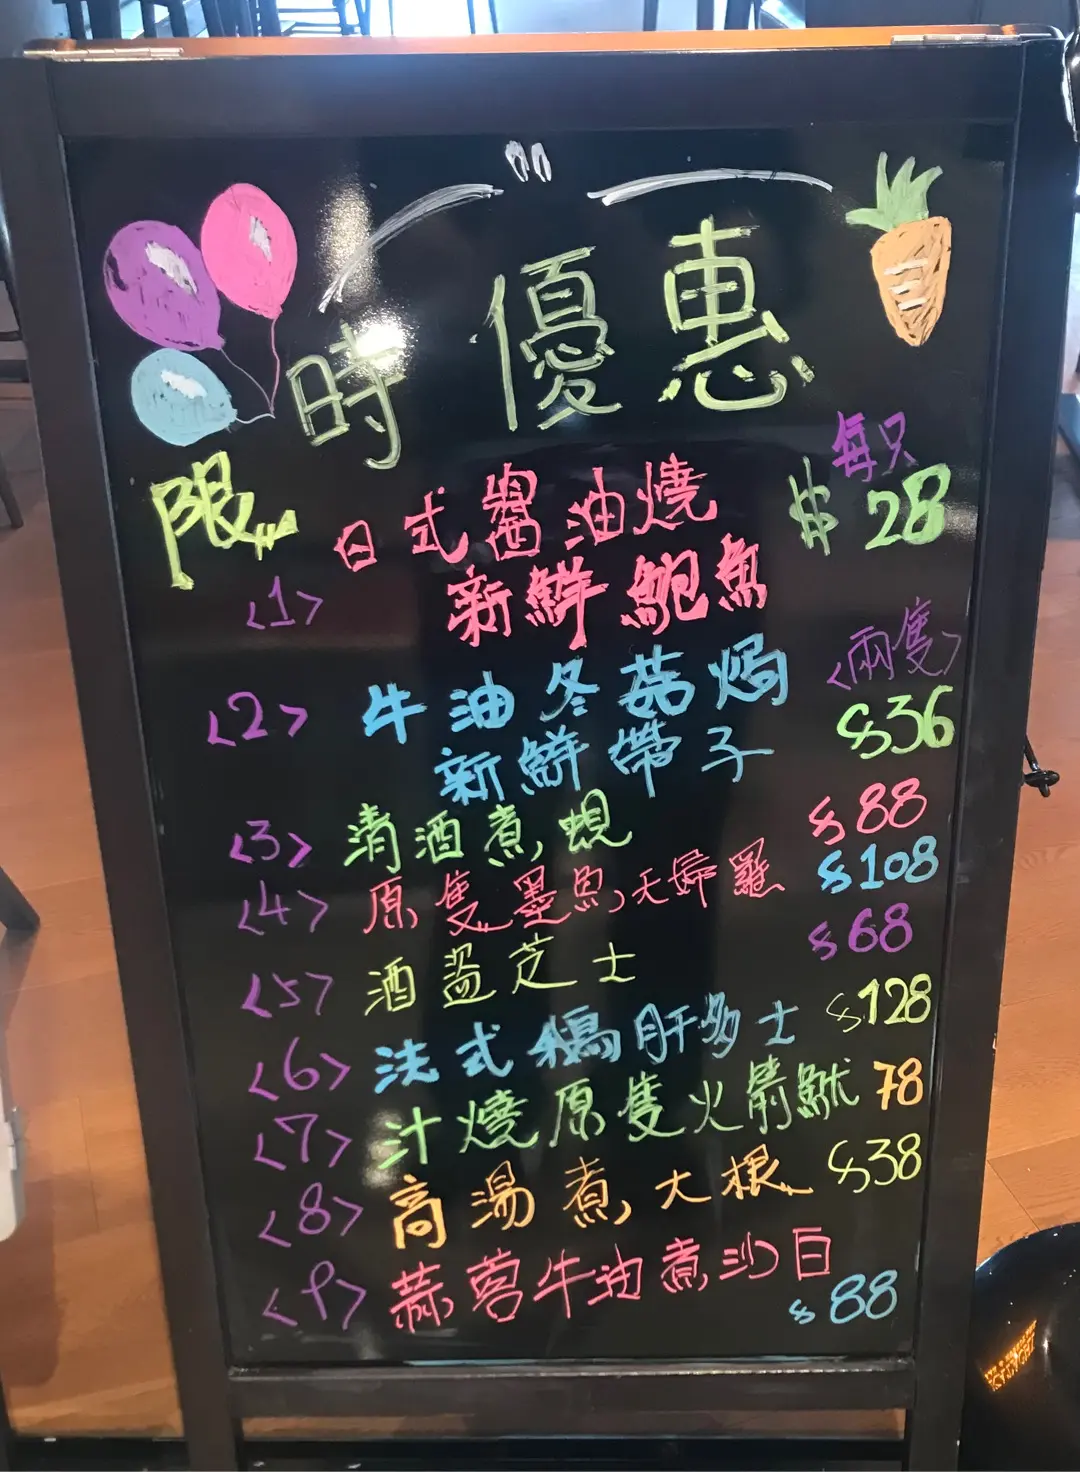 限時優惠
<1> 日式醬油燒 每只
新鮮鮑魚 $28
<2> 牛油冬菇焗 <兩隻>
新鮮帶子 $36
<3> 清酒煮蜆 $88
<4> 原隻墨魚天婦羅 $108
<5> 酒盗芝士 $68
<6> 法式鵝肝多士 $128
<7> 汁燒原隻火箭魷 78
<8> 高湯煮大根 $38
<9> 蒜蓉牛油煮沙白
$88